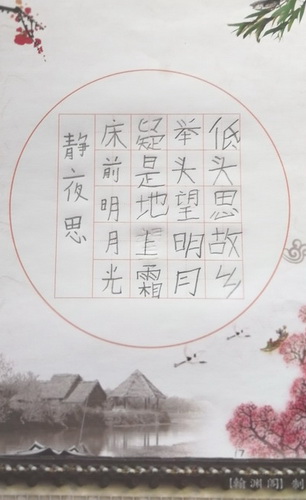 静夜思
床前明月光
疑是地上霜
举头望明月
低头思故乡
【翰渊阁】制